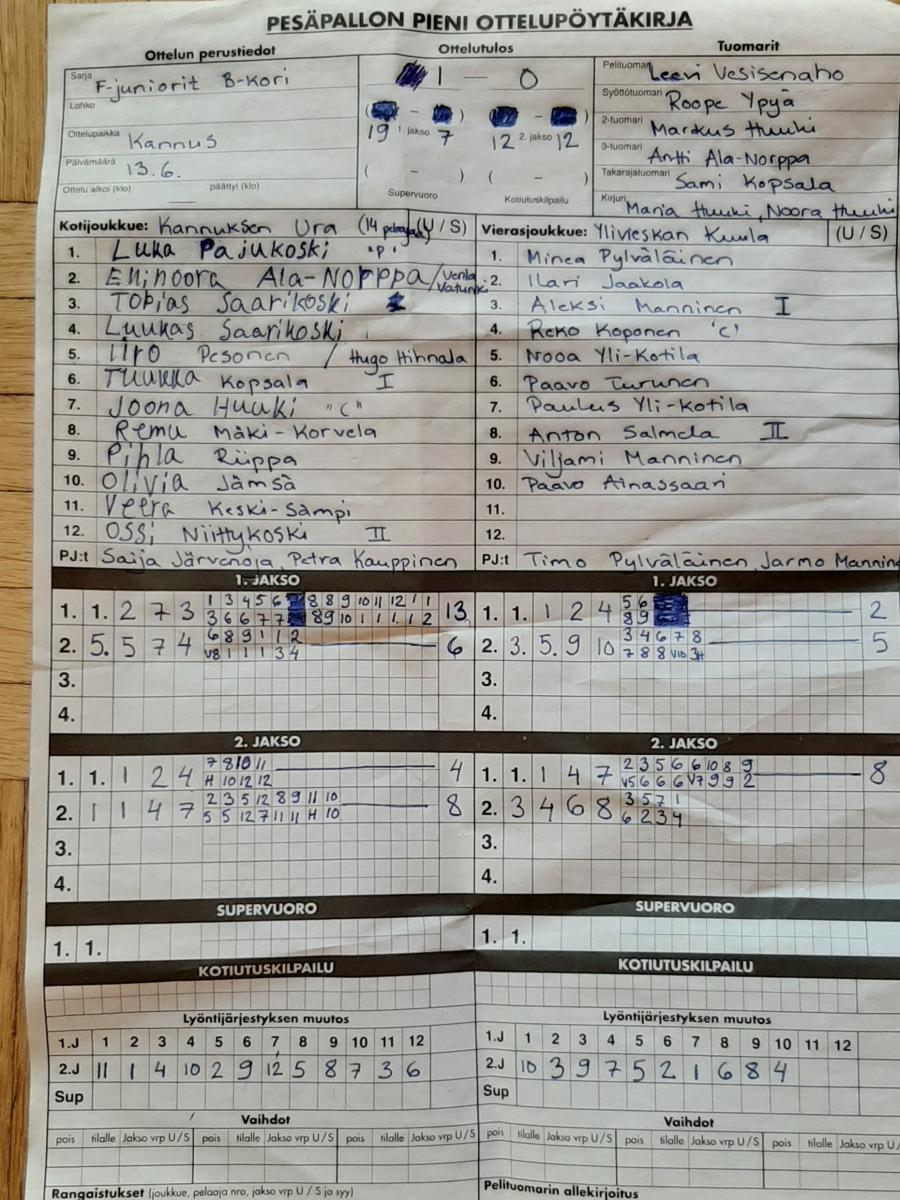 PESÄPALLON PIENI OTTELUPÖYTÄKIRJA
Ottelun perustiedot
Sarja F-juniorit B-kori
Lohko
Ottelupaikka Kannus
Päivämäärä 13.6.
Ottelu alkoi (klo) päättyi (klo)
Ottelutulos
1 — 0
( - ) ( - )
19 1. jakso 7 12 2. jakso 12
( - ) ( - )
Supervuoro Kotiutuskilpailu
Tuomarit
Pelituomari Leevi Vesisenaho
Syöttötuomari Roope Ypyä
2-tuomari Markus Huuki
3-tuomari Antti Ala-Norppa
Takarajatuomari Sami Kopsala
Kirjuri Maria Huuki, Noora Huuki
Kotijoukkue: Kannuksen Ura (14 pelaajaa) (U / S)
1. Luka Pajukoski "P"
2. Ellinoora Ala-Norppa / Venla
3. Tobias Saarikoski
4. Luukas Saarikoski
5. Iiro Pesonen / Hugo Hihnala
6. Tuukka Kopsala I
7. Joona Huuki "C"
8. Remu Mäki-Korvela
9. Pihla Riippa
10. Olivia Jämsä
11. Veera Keski-Sämpi
12. Ossi Niittykoski II
PJ:t Saija Järvenoja, Petra Kauppinen
Vierasjoukkue: Ylivieskan Kuula (U / S)
1. Minea Pylväläinen
2. Ilari Jaakola
3. Aleksi Manninen I
4. Reko Koponen 'C'
5. Nooa Yli-Kotila
6. Paavo Turunen
7. Paulus Yli-Kotila
8. Anton Salmela II
9. Viljami Manninen
10. Paavo Ainassaari
11.
12.
PJ:t Timo Pylväläinen, Jarmo Mannin
1. JAKSO
1. 1. 2 7 3 1 3 4 5 6 8 8 9 10 11 12 1 1 13
3 6 6 7 7 8 9 10 1 1 1. 1 2
2. 5. 5 7 4 6 8 9 1 1 2 6
V8 1 1 1 3 4
3.
4.
1. JAKSO
1. 1. 1 2 4 5 6 2
8 9
2. 3. 5. 9 10 3 4 6 7 8 5
7 8 8 V10 3H
3.
4.
2. JAKSO
1. 1. 1 2 4 7 8 10 11 4
H 10 12 12
2. 1 1 4 7 2 3 5 12 8 9 11 10 8
5 5 12 7 11 11 H 10
3.
4.
2. JAKSO
1. 1. 1 4 7 2 3 5 6 6 10 8 9 8
V5 6 6 6 V7 9 9 2
2. 3 4 6 8 3 5 7 1
6 2 3 4
3.
4.
SUPERVUORO
1. 1.
SUPERVUORO
1. 1.
KOTIUTUSKILPAILU
KOTIUTUSKILPAILU
Lyöntijärjestyksen muutos
1.J 1 2 3 4 5 6 7 8 9 10 11 12
2.J 11 1 4 10 2 9 12 5 8 7 3 6
Sup
Lyöntijärjestyksen muutos
1.J 1 2 3 4 5 6 7 8 9 10 11 12
2.J 10 3 9 7 5 2 1 6 8 4
Sup
Vaihdot
pois tilalle Jakso vrp U / S pois tilalle Jakso vrp U / S pois tilalle Jakso vrp U / S
Vaihdot
pois tilalle Jakso vrp U / S pois tilalle Jakso vrp U / S pois tilalle Jakso vrp U /
Rangaistukset (joukkue, pelaaja nro, jakso vrp U / S ja syy)
Pelituomarin allekirjoitus